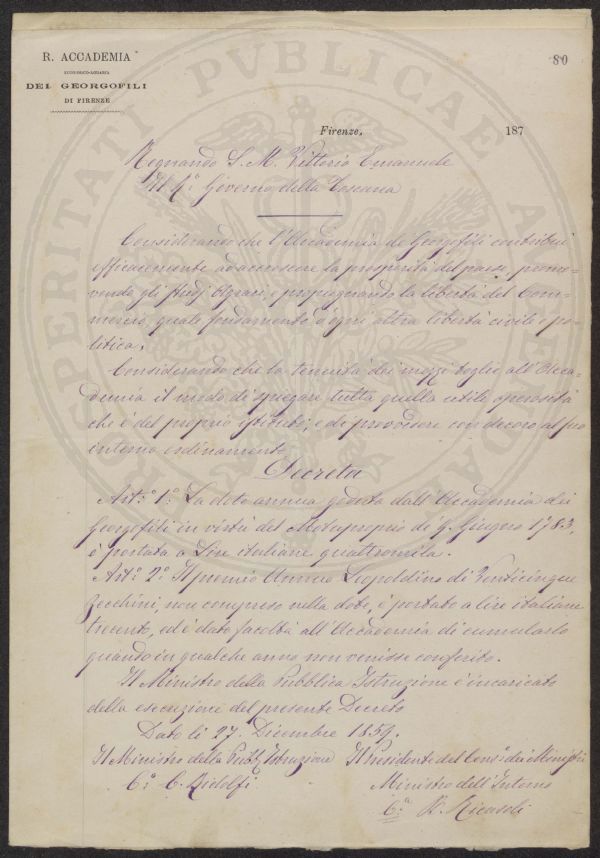 R. ACCADEMIA
ECONOMICO-AGRARIA
DEI GEORGOFILI
DI FIRENZE
80
PROSPERITATI PVBLICAE AVGENDAE
Firenze, 187
Regnando S. M. Vittorio Emanuele
Il R.º Governo della Toscana
Considerando che l'Accademia de' Georgofili contribuì
efficacemente ad accrescere la prosperità del paese promo-
vendo gli studj Agrari, e propugnando la libertà del Com-
mercio, quale fondamento d'ogni altra libertà civile e po-
litica,
Considerando che la tenuità dei mezzi toglie all'Acca-
demia il modo di spiegare tutta quella utile operosità
che è del proprio istituto, e di provvedere con decoro al suo
interno ordinamento
Decreta
Art.º 1.º La dote annua goduta dall'Accademia dei
Georgofili in virtù del Motuproprio de' 9. Giugno 1783,
è portata a Lire italiane quattromila.
Art.º 2.º Il premio Annuo Leopoldino di Venticinque
Zecchini, non compreso nella dote, è portato a lire italiane
trecento, ed è dato facoltà all'Accademia di cumularlo
quando in qualche anno non venisse conferito.
Il Ministro della Pubblica Istruzione è incaricato
della esecuzione del presente Decreto
Dato li 27. Dicembre 1859.
Il Ministro della Pubb. Istruzione Il Presidente del Cons.º dei Ministri
C. Ridolfi Ministro dell'Interno
R. Ricasoli